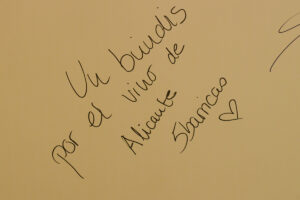 Un brindis
por el vino de
Alicante
5barricas ♡